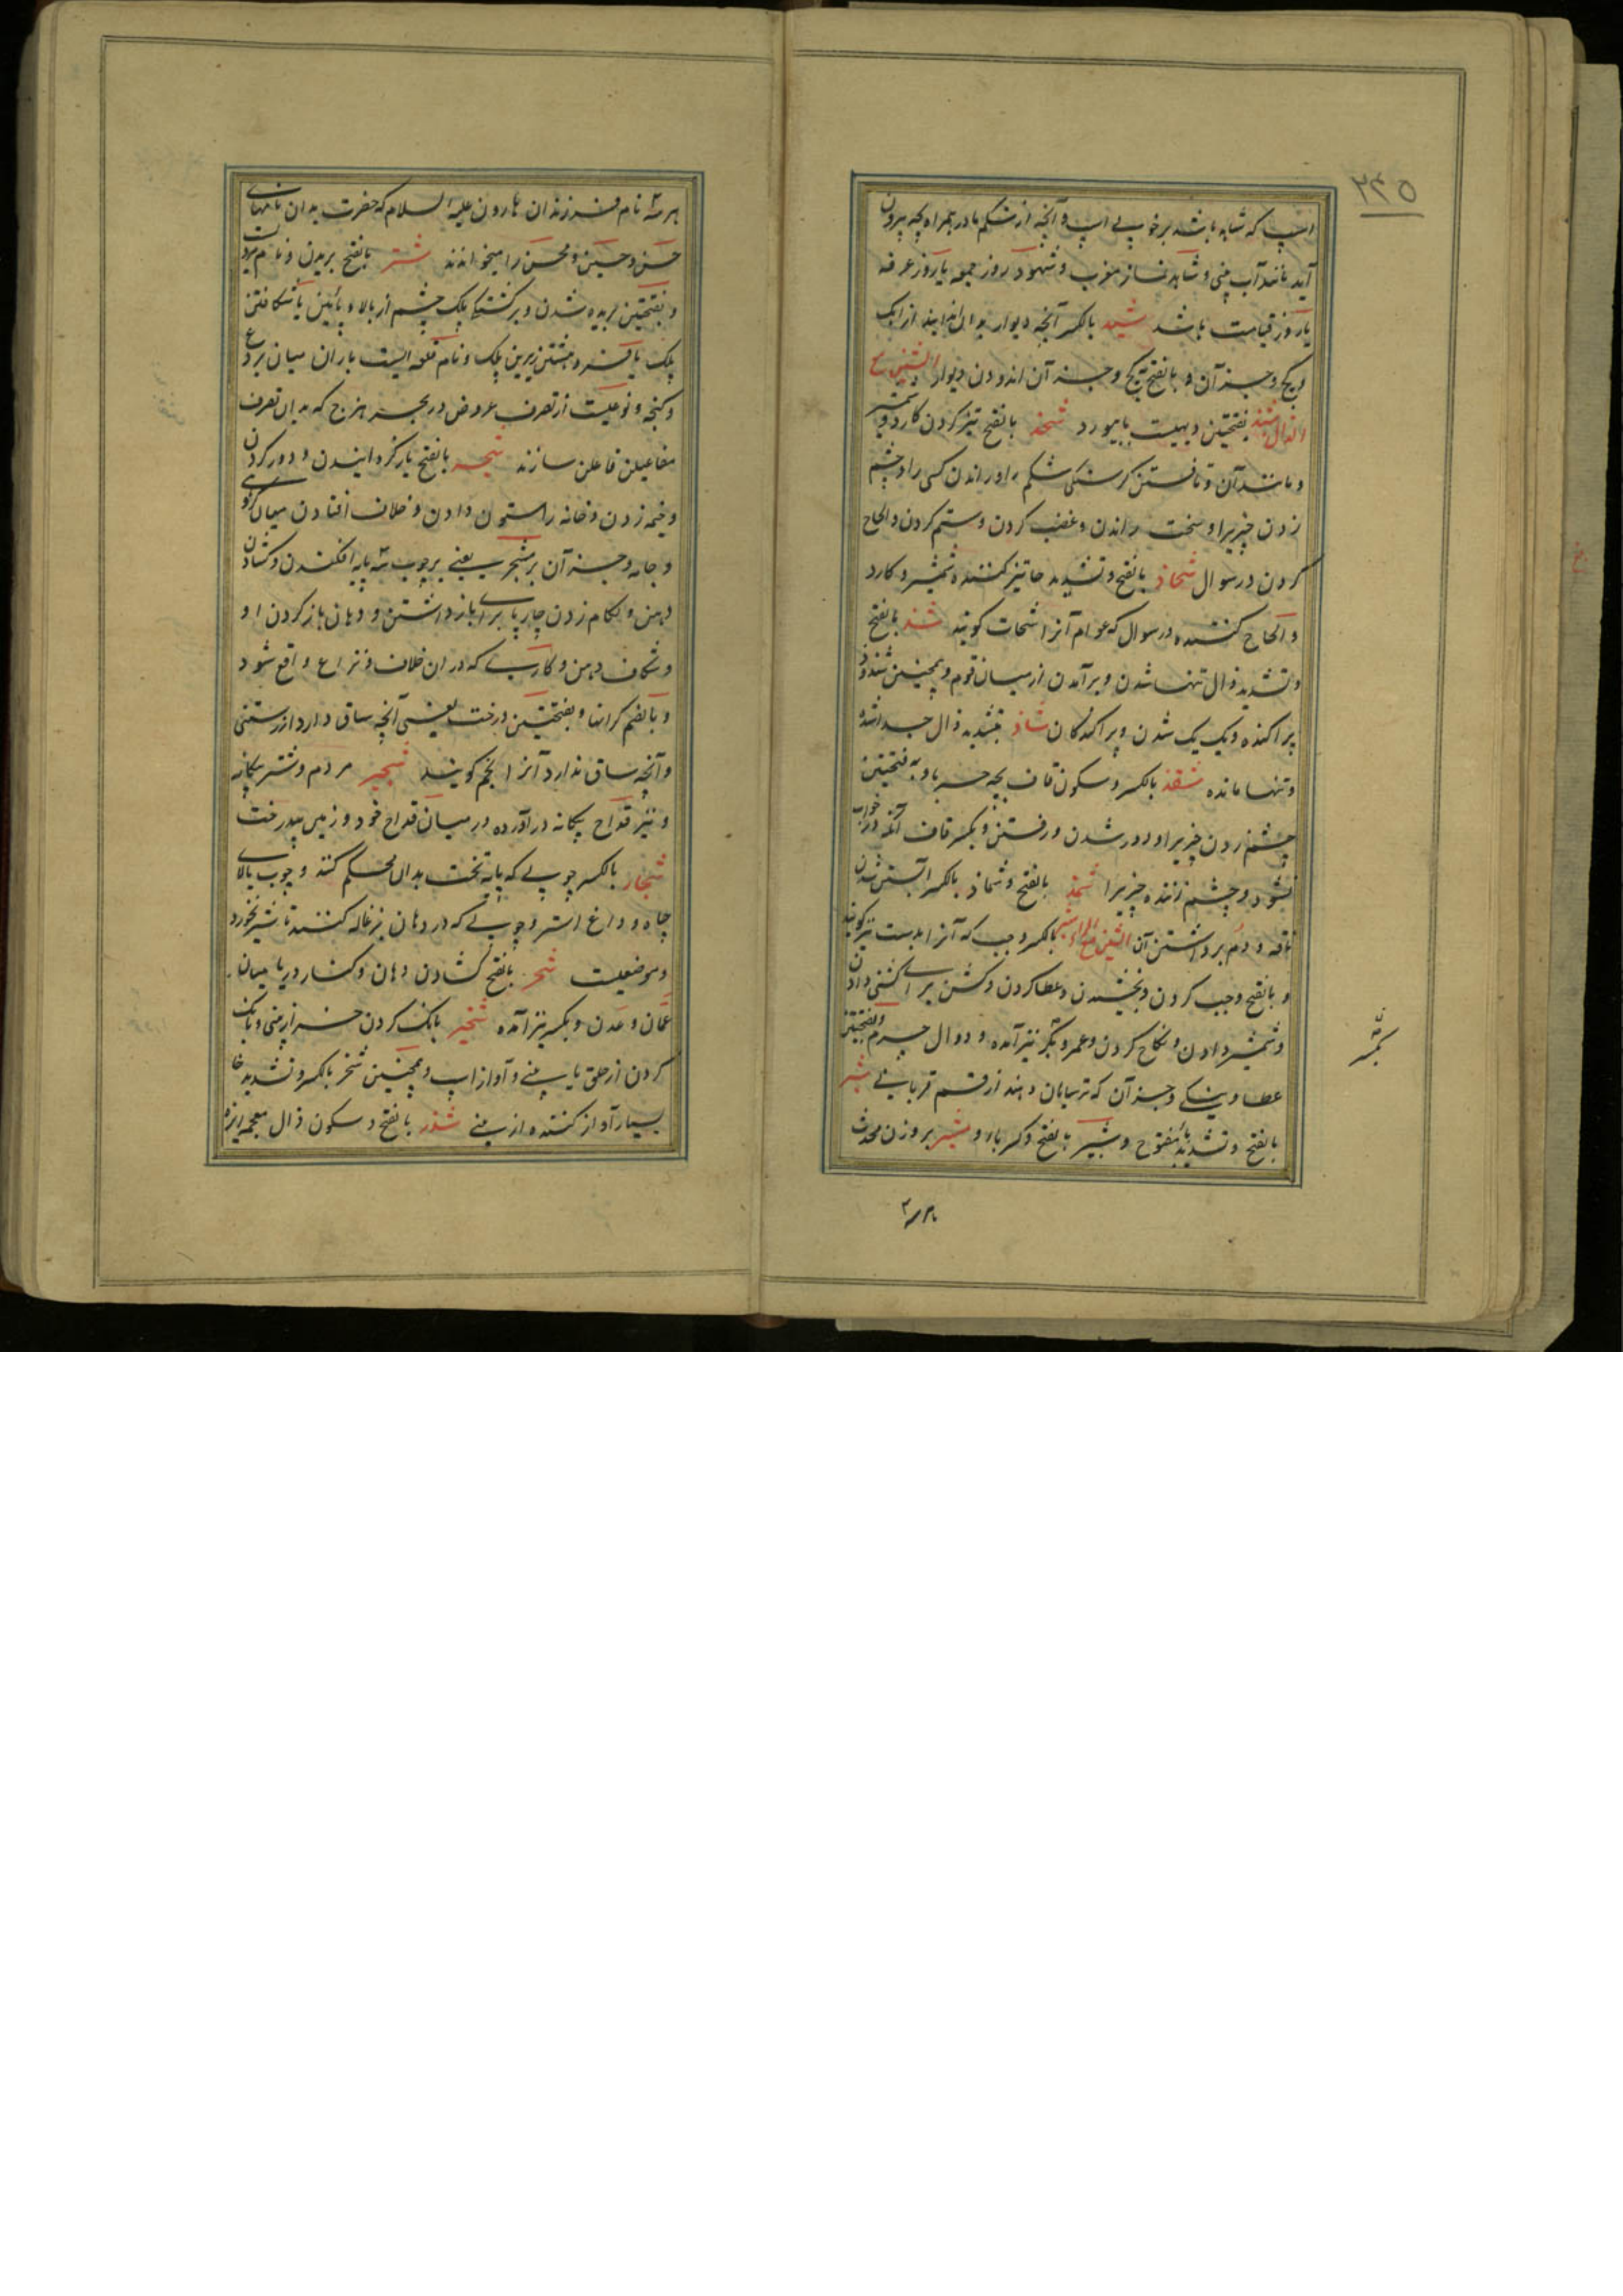 ۲۴۵
اسپ که شاهد باشد برخوب پی اسپ و آنچه از شکم مادر همراه بچه بیرون
آید مانند آب بینی و شاهد نماز مغرب و شهود روز جمعه یا روز عرفه
یا روز قیامت باشد شید بالکسر آنچه دیوار بدان اندایند از آهک
و گچ و جز آن و بالفتح گچ و جز آن اندودن دیوار الشین مع
الذال بفتحتین دیهیست بابیورد شحذ بالفتح تیز کردن کارد و شمشیر
و مانند آن و تافتن گرسنگی شکم را و راندن کسی را و چشم
زدن چیزیرا و سخت راندن و غضب کردن و ستم کردن و الحاح
کردن در سوال شحاذ بالفتح و تشدید حا تیز کننده شمشیر و کارد
و الحاح کننده در سوال که عوام آنرا شحات گویند شذ بالفتح
و تشدید ذال تنها شدن و برآمدن از میان قوم و همچنین شذوذ
پراکنده و یک یک شدن و پراکندگان شاذ بتشدید ذال جدا شده
و تنها مانده شقذ بالکسر و سکون قاف بچه حربا و بفتحتین
چشم زدن چیزیرا و دور شدن و رفتن و بکسر قاف آنکه در خواب
نشود و چشم زننده چیزیرا شمذ بالفتح و شماذ بالکسر آبستن شدن
ناقه و دم برداشتن آن الشین مع الراء شبر بالکسر وجب که آنرا بدست نیز گویند
و بالفتح وجب کردن و بخشیدن و عطا کردن و گشن برای گشنی دادن
و شمشیر دادن و نکاح کردن و عمر و بکسر نیز آمده و دوال چرم و بفتحتین
عطا و نیکی و جز آن که ترسایان دهند از قسم قربانی شبر
بالفتح و تشدید بای مفتوح و شبیر بالفتح و کسر با و مشبر بروزن محدث
هر سه
هر سه نام فرزندان هارون علیه السلام که حضرت بدان نامهای
حسن و حسین و محسن را میخواندند شتر بالفتح بریدن و نام مردیست
و بفتحتین بریده شدن و برگشتگی پلک چشم از بالا و پائین یا شکافتن
پلک یا فرو هشتن زیرین پلک و نام قلعه ایست باران میان بردع
و گنجه و نوعیست از تصرف عروض در بحر هزج که بدان تصرف
مفاعیلن فاعلن سازند شجر بالفتح بازگردانیدن و دور کردن
و خیمه زدن و خانه را ستون دادن و خلاف افتادن میان گروهی
و جامه و جز آن بر مشجر یعنی بر چوب سه پایه افکندن و گشادن
دهن و لگام زدن چارپا برای بازداشتن و دهان باز کردن او
و شکاف دهن و کاریست که در ان خلاف و نزاع واقع شود
و بالضم کرانها و بفتحتین درخت یعنی آنچه ساق دارد از رستنی
و آنچه ساق ندارد آنرا نجم گویند شجیر مردم و شتر بیگانه
و تیر قداح بیگانه درآورده در میان قداح خود و زمین پردرخت
شجار بالکسر چوبی که پایه تخت بدان محکم کنند و چوب بالای
چاه و داغ اشتر و چوبی که در دهان بزغاله کنند تا شیر نخورد
و موضعیست شحر بالفتح گشادن دهان و کنار دریا میان
عمان و عدن و بکسر نیز آمده شخیر بانگ کردن خر از بینی و بانگ
کردن از حلق یا بینی و آواز اسپ و همچنین شخر بالکسر و تشدید خا
بسیار آواز کننده از بینی شذر بالفتح و سکون ذال معجمه ریزه